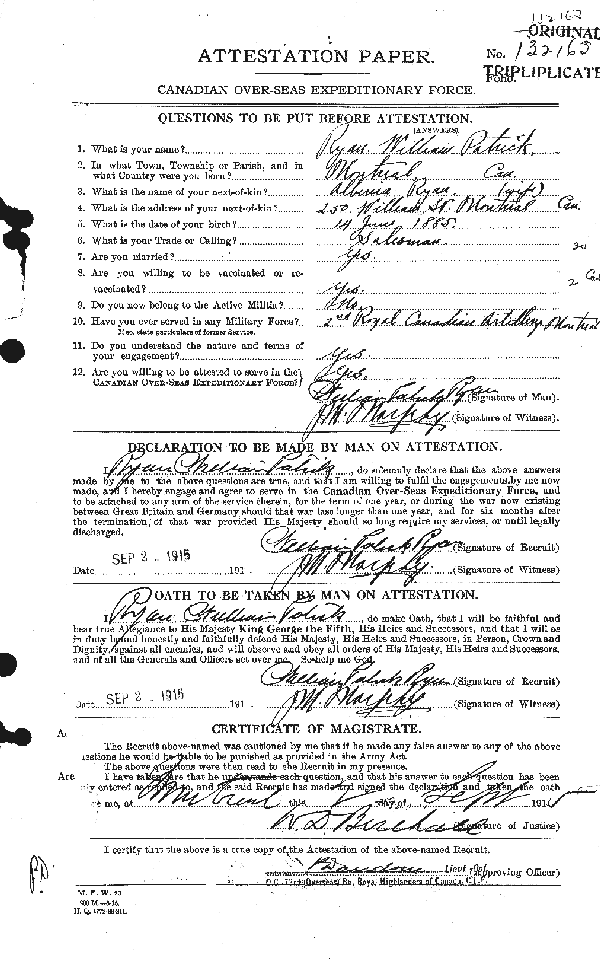 112163
ORIGINAL
No. 132163
ATTESTATION PAPER.
TRIPLIPLICATE
Folio.
CANADIAN OVER-SEAS EXPEDITIONARY FORCE.
QUESTIONS TO BE PUT BEFORE ATTESTATION.
(ANSWERS).
1. What is your name? Ryan William Patrick
2. In what Town, Township or Parish, and in
what Country were you born? Montreal Can.
3. What is the name of your next-of-kin? Ryan (wife)
4. What is the address of your next-of-kin? 250 William St. Montreal Can
5. What is the date of your birth? 14 June 1885.
6. What is your Trade or Calling? Salesman
7. Are you married? yes.
8. Are you willing to be vaccinated or re-
vaccinated? yes.
9. Do you now belong to the Active Militia? No.
10. Have you ever served in any Military Force? 2nd Royal Canadian Artillery Montreal
If so, state particulars of former Service.
11. Do you understand the nature and terms of
your engagement? yes.
12. Are you willing to be attested to serve in the
CANADIAN OVER-SEAS EXPEDITIONARY FORCE? Yes.
William Patrick Ryan (Signature of Man).
J M Morphy (Signature of Witness).
DECLARATION TO BE MADE BY MAN ON ATTESTATION.
I, Ryan William Patrick, do solemnly declare that the above answers
made by me to the above questions are true, and that I am willing to fulfil the engagements by me now
made, and I hereby engage and agree to serve in the Canadian Over-Seas Expeditionary Force, and
to be attached to any arm of the service therein, for the term of one year, or during the war now existing
between Great Britain and Germany should that war last longer than one year, and for six months after
the termination of that war provided His Majesty should so long require my services, or until legally
discharged.
William Patrick Ryan (Signature of Recruit)
Date SEP 2 - 1915 191 . J M Morphy (Signature of Witness)
OATH TO BE TAKEN BY MAN ON ATTESTATION.
I, Ryan William Patrick, do make Oath, that I will be faithful and
bear true Allegiance to His Majesty King George the Fifth, His Heirs and Successors, and that I will as
in duty bound honestly and faithfully defend His Majesty, His Heirs and Successors, in Person, Crown and
Dignity, against all enemies, and will observe and obey all orders of His Majesty, His Heirs and Successors,
and of all the Generals and Officers set over me. So help me God.
William Patrick Ryan (Signature of Recruit)
Date SEP 2 - 1915 191 . J M Morphy (Signature of Witness)
A. CERTIFICATE OF MAGISTRATE.
The Recruit above-named was cautioned by me that if he made any false answer to any of the above
questions he would be liable to be punished as provided in the Army Act.
The above questions were then read to the Recruit in my presence.
Are I have taken care that he understands each question, and that his answer to each question has been
duly entered as replied to, and the said Recruit has made and signed the declaration and taken the oath
before me, at Montreal this 2 day of Sept 1915
(Signature of Justice)
I certify that the above is a true copy of the Attestation of the above-named Recruit.
Lieut Col. (Approving Officer)
O.C. Overseas Bn. Royal Highlanders of Canada
M. F. W. 23
H. Q. 1772-39-811.